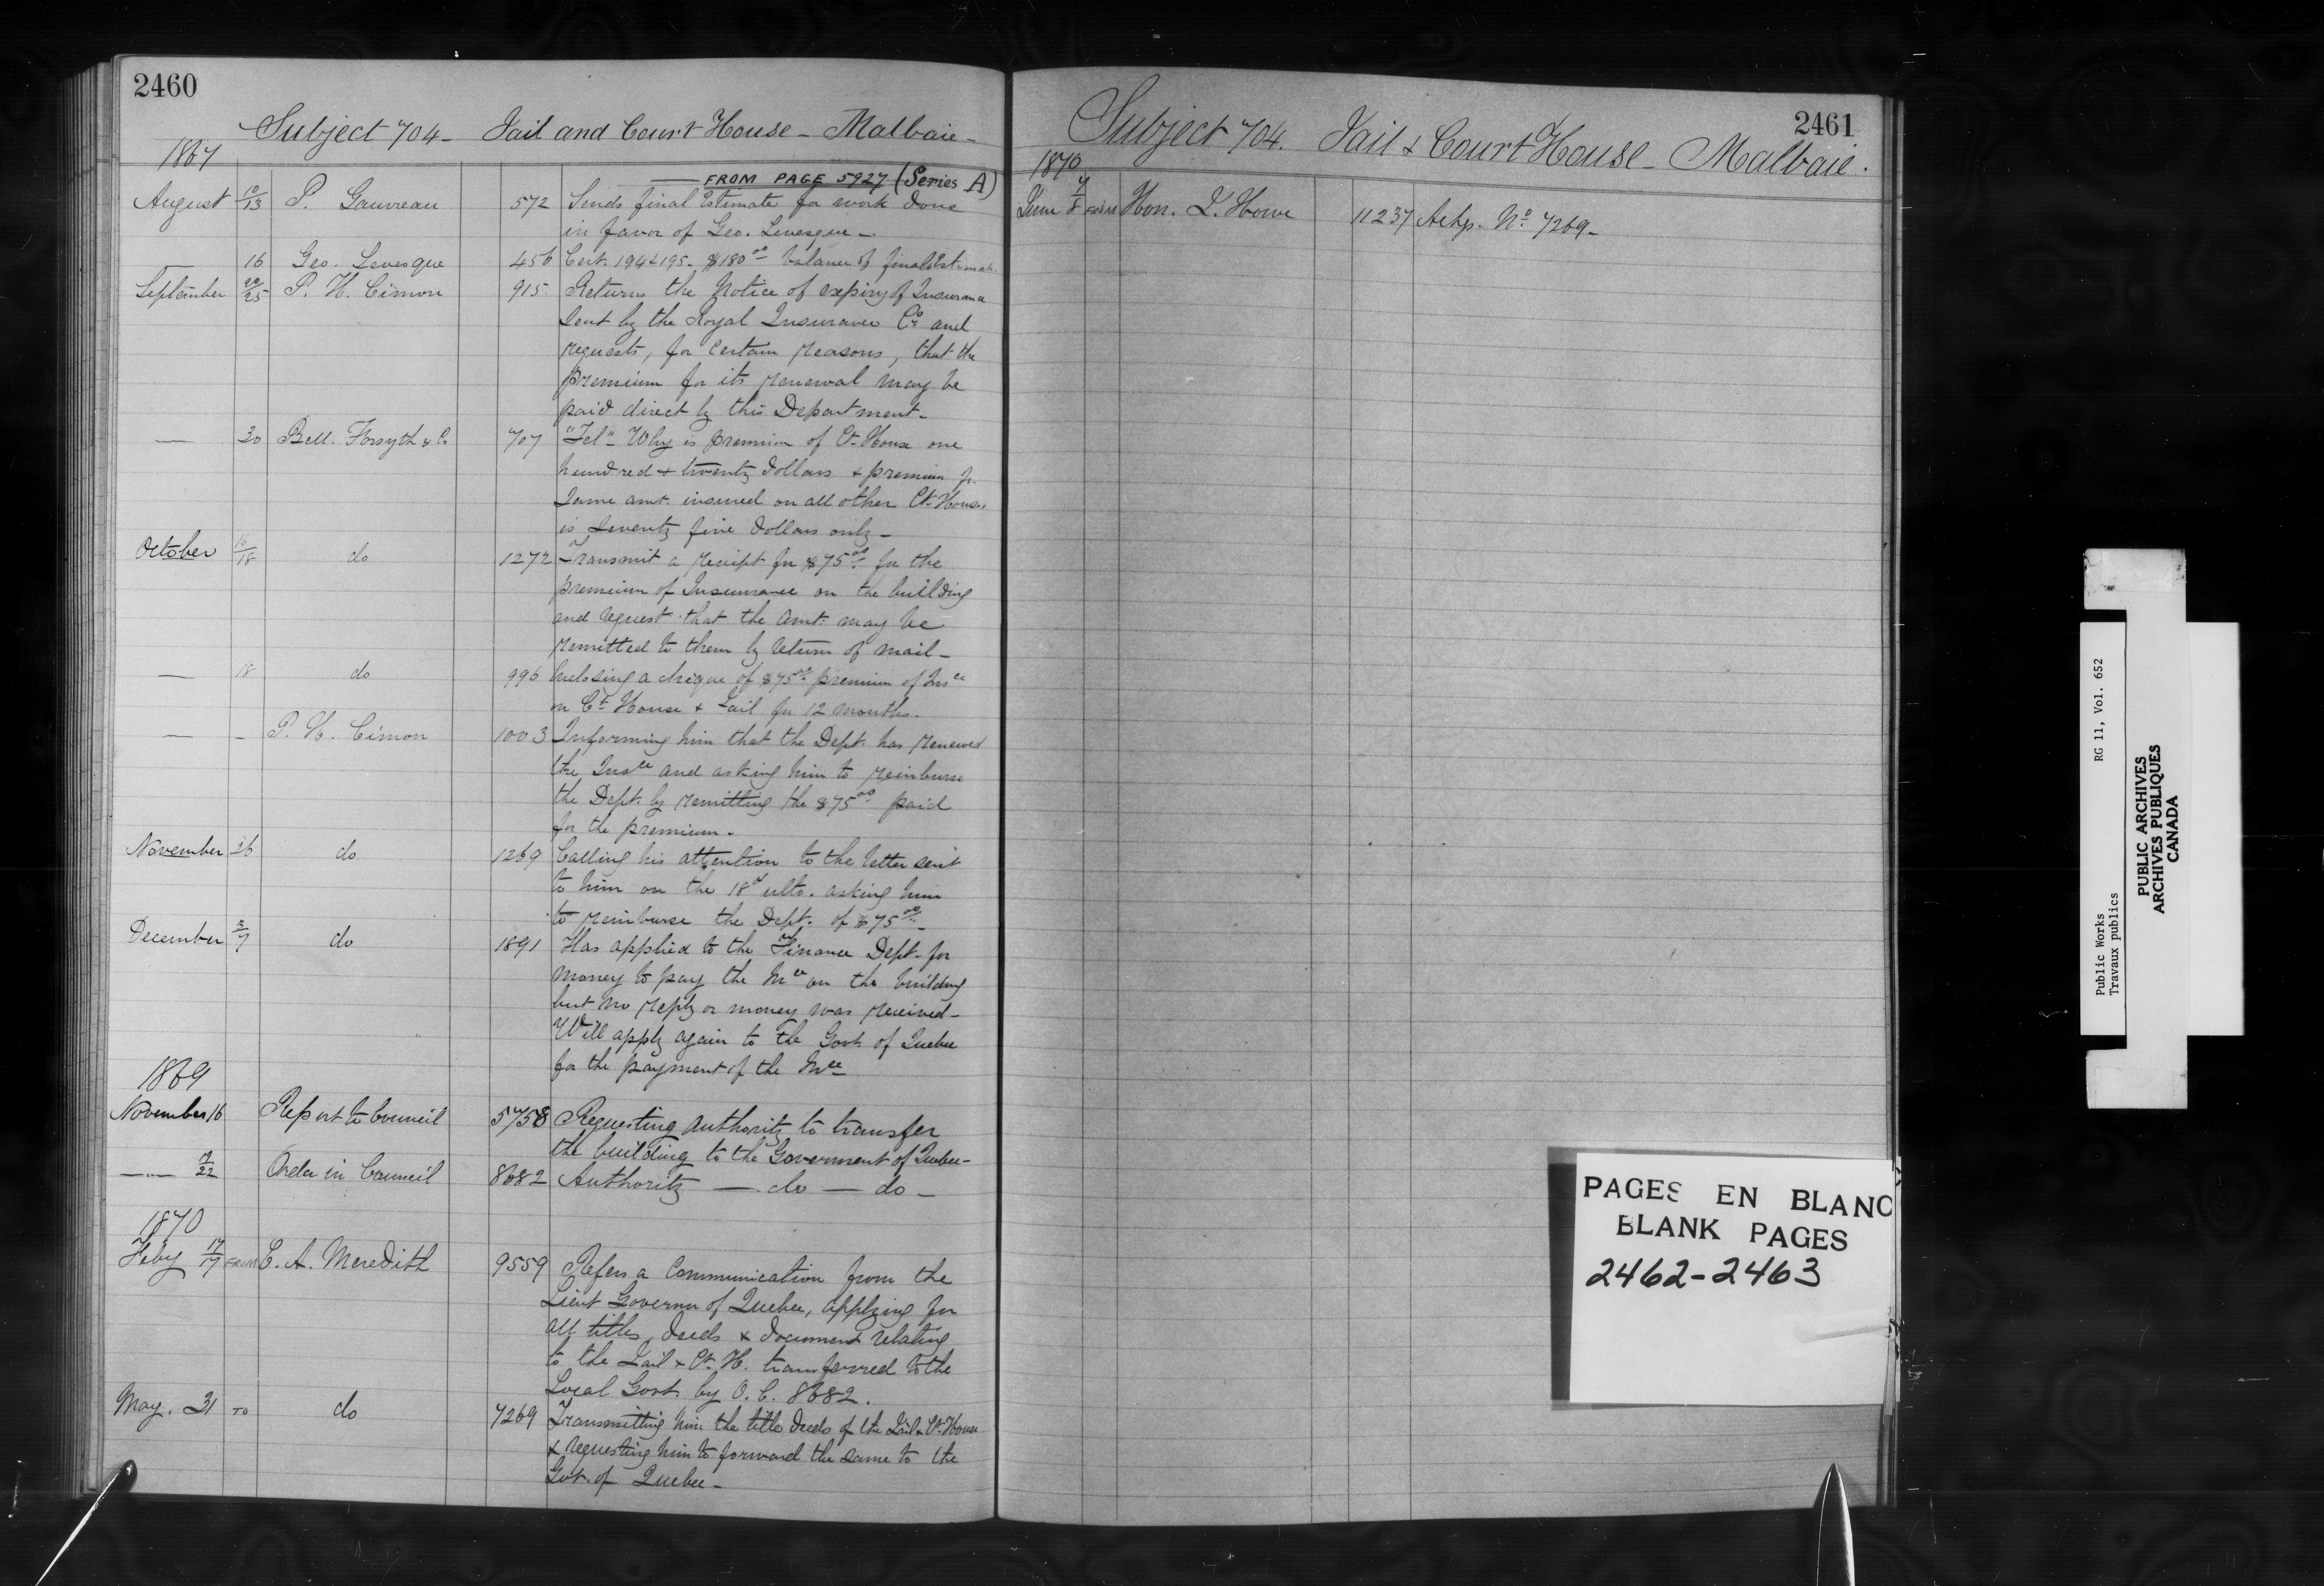 2460
Subject 704 - Jail and Court House - Malbaie -
1867
FROM PAGE 5927 (Series A)
August 10/13 P. Gauvreau 572 Sends final Estimate for work done
in favor of Geo. Levesque -
— 16 Geo. Levesque 456 Cert. 194 & 195 - $180.00 balance of final Estimate
September 20/25 P. H. Cimon 915 Returns the Notice of expiry of Insurance
sent by the Royal Insurance Co. and
requests, for certain reasons, that the
premium for its renewal may be
paid direct by this Department -
— 30 Bell. Forsyth & Co 707 "Tel" Why is premium of Ct. House one
hundred & twenty dollars & premium fr.
same amt. insured on all other Ct. Houses
is seventy five dollars only -
October 16/18 do 1272 Transmit a receipt for $75.00 for the
premium of Insurance on the building
and request that the amt. may be
remitted to them by return of mail -
— 18 do 996 Enclosing a cheque of $75.00 premium of Insce
on Ct. House & Jail for 12 months.
— - P. H. Cimon 1003 Informing him that the Dept. has renewed
the Insce and asking him to reimburse
the Dept. by remitting the $75.00 paid
for the premium -
November 26 do 1269 Calling his attention to the letter sent
to him on the 18th ulto. asking him
to reimburse the Dept. of $75.00 -
December 3/7 do 1891 Has applied to the Finance Dept. for
money to pay the Ince on the building
but no reply or money was received -
Will apply again to the Govt. of Quebec
for the payment of the Ince
1869
November 16 Report to Council 5758 Requesting authority to transfer
the building to the Goverment of Quebec -
— — 17/22 Order in Council 8682 Authority — do — do -
1870
Feby 17/17 FROM E. A. Meredith 9559 Refers a communication from the
Lieut Governor of Quebec, applying for
all titles, deeds & document relating
to the Jail & Ct. H. transferred to the
Local Govt. by O. C. 8682.
May. 31 TO do 7269 Transmitting him the title deeds of the Jail & Ct. House
& requesting him to forward the same to the
Govt. of Quebec -
2461
Subject 704. Jail & Court House - Malbaie.
1870
June 7/8 FROM Hon. J. Howe 11237 Ackgs. No. 7269 -
PAGES EN BLANC
BLANK PAGES
2462-2463
Public Works RG 11, Vol. 652
Travaux publics
PUBLIC ARCHIVES
ARCHIVES PUBLIQUES
CANADA